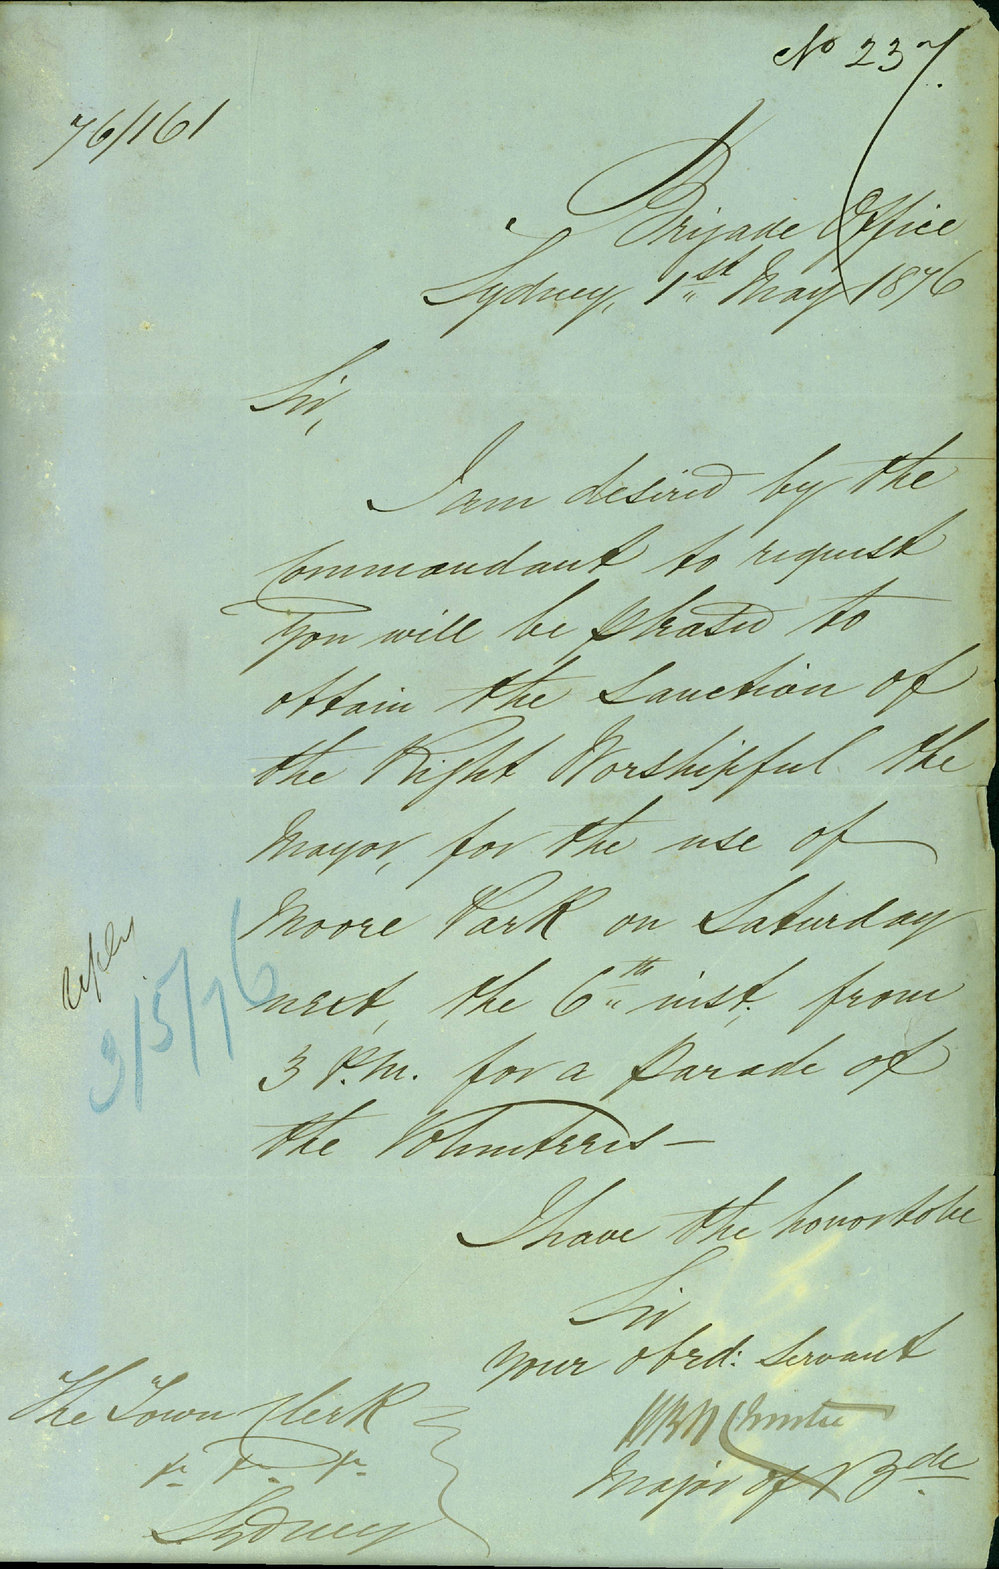 No 237.
76/161
Brigade Office
Sydney, 1st May 1876
Sir,
I am desired by the
Commandant to request
you will be pleased to
obtain the sanction of
the Right Worshipful the
Mayor, for the use of
Moore Park on Saturday
next, the 6th inst, from
3 P.M. for a parade of
the Volunteers —
reply
3/5/76
I have the honor to be
Sir
Your obed: Servant
Major of Bde
The Town Clerk
&c &c &c
Sydney